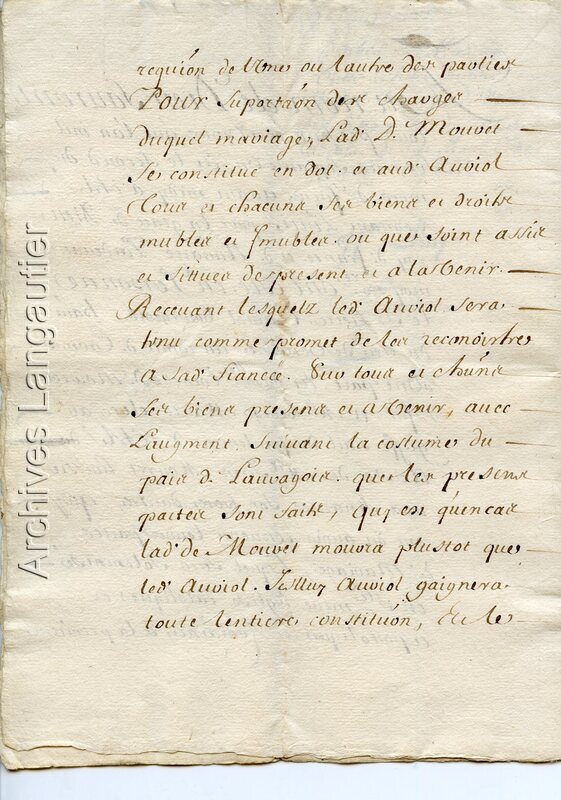 requi͠on de lune ou lautre des parties
Pour suporta͠on des charges
duquel mariage, Lad. D. Mouret
se constitue en dot et aud Auriol
tous et chacuns ses biens et droits
mubles et Jmubles ou que soint assis
et sittues de present et a lavenir.
Recevant lesquelz led. Auriol sera
tenu comme promet de les reconoistre
a sad. fiancée. Sur tous et chũns
ses biens presens et avenir, avec
Laugment suivant la costume du
pais de Lauragois que les presens
pactes sont faits, quy est qu'encas
lad. de Mouret moura plustot que
led. Auriol. Jcelluy Auriol gaignera
toute lentiere constitu͠on, Et le
Archives Langautier